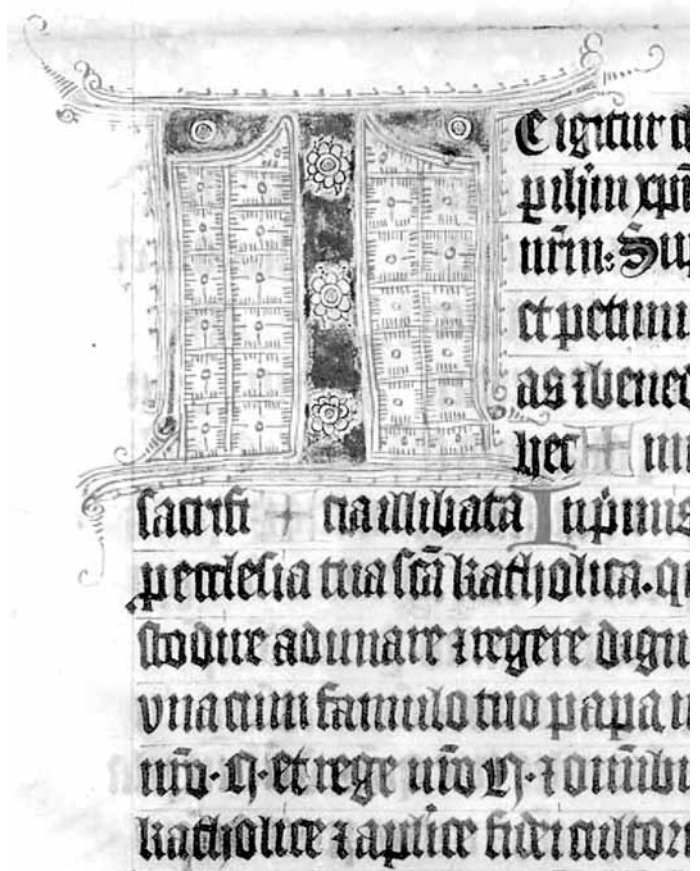 T
E igitur cl
p ih̄m xp̄m
nr̄m: Sup
et petimu
as ⁊ bened
hec + un
sacrifi + cia illibata In p̄mis
p ecclesia tua sc̄a katholica. q
stodire adunare ⁊ regere dign
vna cum famulo tuo papa n
nr̄o · N · et rege nr̄o N · ⁊ om̄ibu
katholice ⁊ ap̄lice fidei cultori